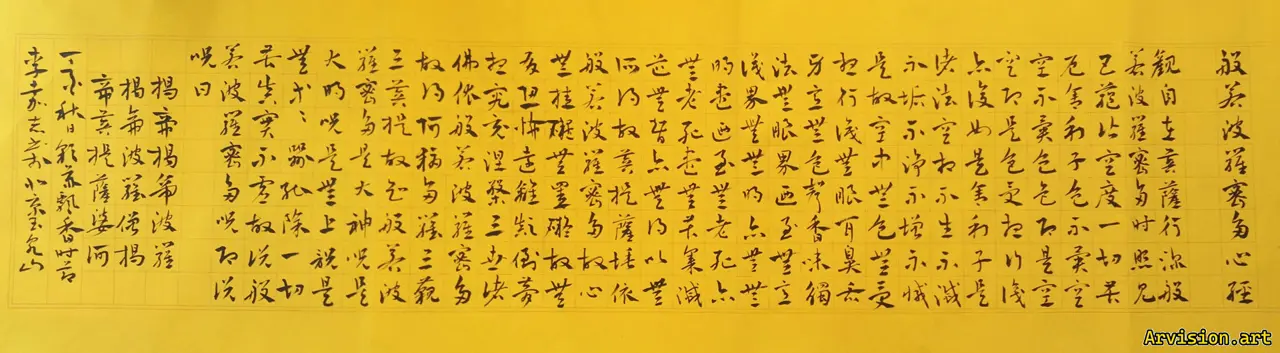 般若波羅密多心經
觀自在菩薩行深般
若波羅密多時照見
五蘊皆空度一切苦
厄舍利子色不異空
空不異色色即是空
空即是色受想行識
亦復如是舍利子是
諸法空相不生不滅
不垢不淨不增不減
是故空中無色無受
想行識無眼耳鼻舌
身意無色聲香味觸
法無眼界乃至無意
識界無無明亦無無
明盡乃至無老死亦
無老死盡無苦集滅
道無智亦無得以無
所得故菩提薩埵依
般若波羅密多故心
無挂礙無罣礙故無
有恐怖遠離顛倒夢
想究竟涅槃三世諸
佛依般若波羅密多
故得阿耨多羅三藐
三菩提故知般若波
羅密多是大神咒是
大明咒是無上咒是
無等等咒能除一切
苦真實不虛故說般
若波羅密多咒即說
咒曰
揭帝揭帝波羅
揭帝波羅僧揭
帝菩提薩婆訶
秋日飄香時節
李志北京玉泉山
Arvision.art